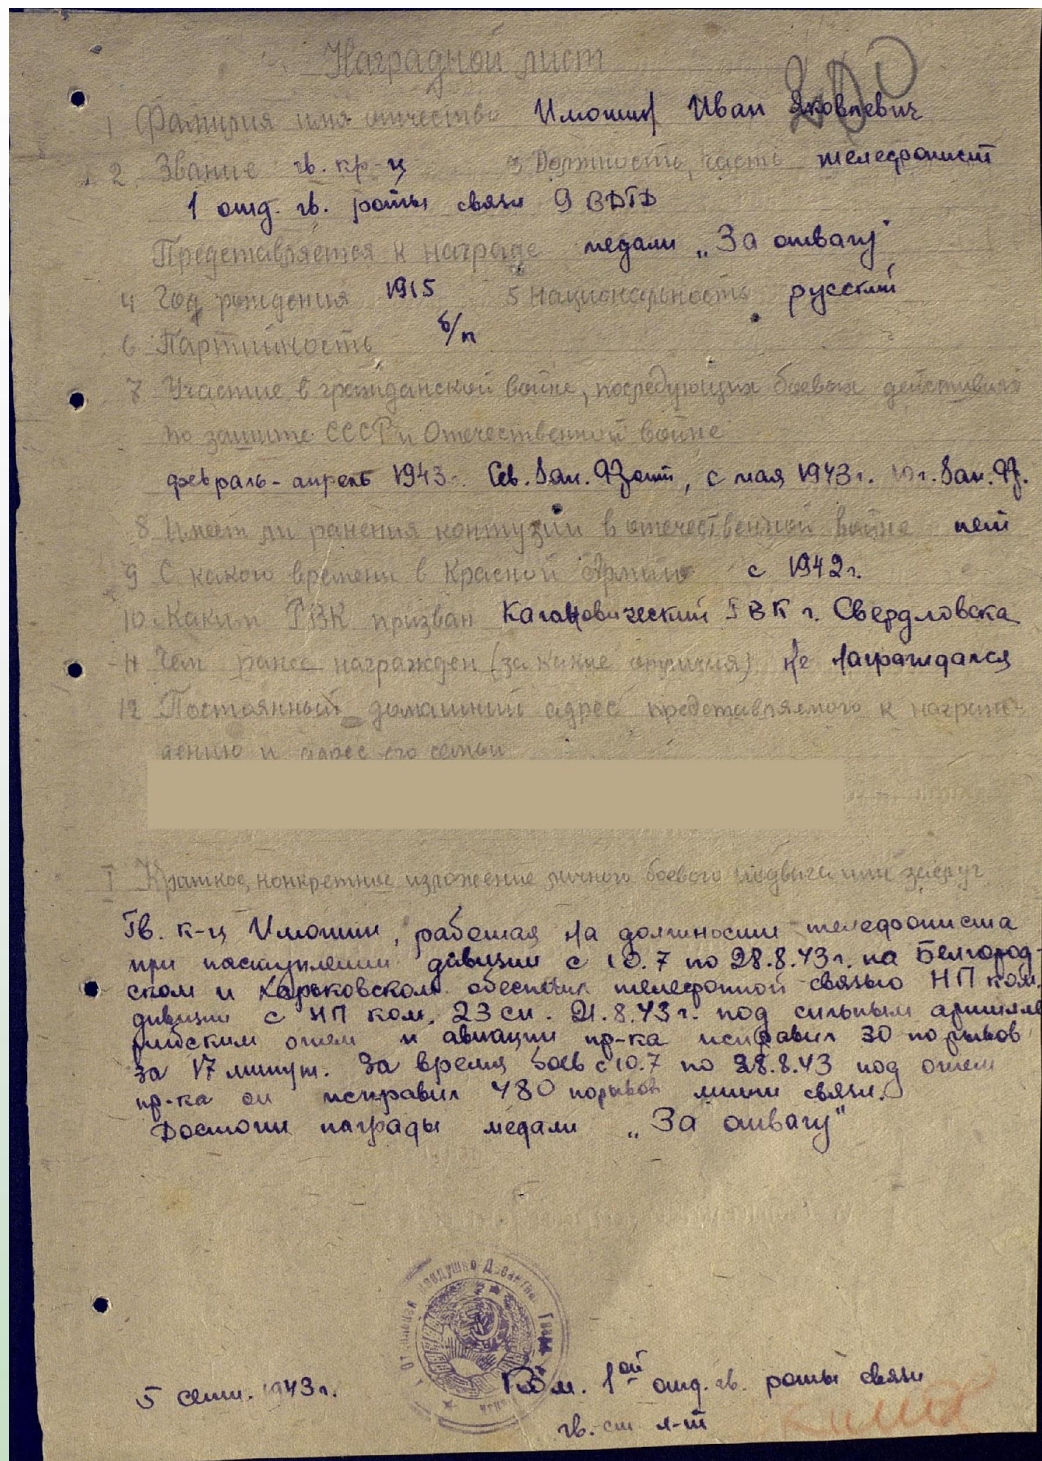 Наградной лист
1 Фамилия имя отчество Имошин Иван Яковлевич
2. Звание гв. кр-ц 3 Должность, часть телефонист
1 отд. гв. роты связи 9 ВДГД
Представляется к награде медали „За отвагу"
4 Год рождения 1915 5 Национальность русский
6 Партийность б/п
7 Участие в гражданской войне, последующих боевых действиях
по защите СССР и Отечественной войне
февраль-апрель 1943г. Сев. Зап. Фронт, с мая 1943г.
8 Имеет ли ранения контузии в отечественной войне нет
9 С какого времени в Красной Армии с 1942г.
10 Каким РВК призван Кагановический РВК г. Свердловска
11 Чем ранее награжден (за какие отличия) Не награждался
12 Постоянный домашний адрес представляемого к награж
дению и адрес его семьи
I Краткое, конкретное изложение личного боевого подвига или заслуг
Гв. к-ц Имошин, работая на должности телефониста
при наступлении дивизии с 10.7 по 28.8.43г. на Белгород-
ском и Харьковском обеспечил телефонной связью НП ком.
дивизии с НП ком. 23 сп. 21.8.43г. под сильным артилле
рийским огнем и авиации пр-ка исправил 30 порывов
за 17 минут. За время боев с 10.7 по 28.8.43 под огнем
пр-ка он исправил 480 порывов линии связи.
Достоин награды медали „За отвагу"
5 сент. 1943г. 1ой отд. гв. роты связи
гв. ст л-т